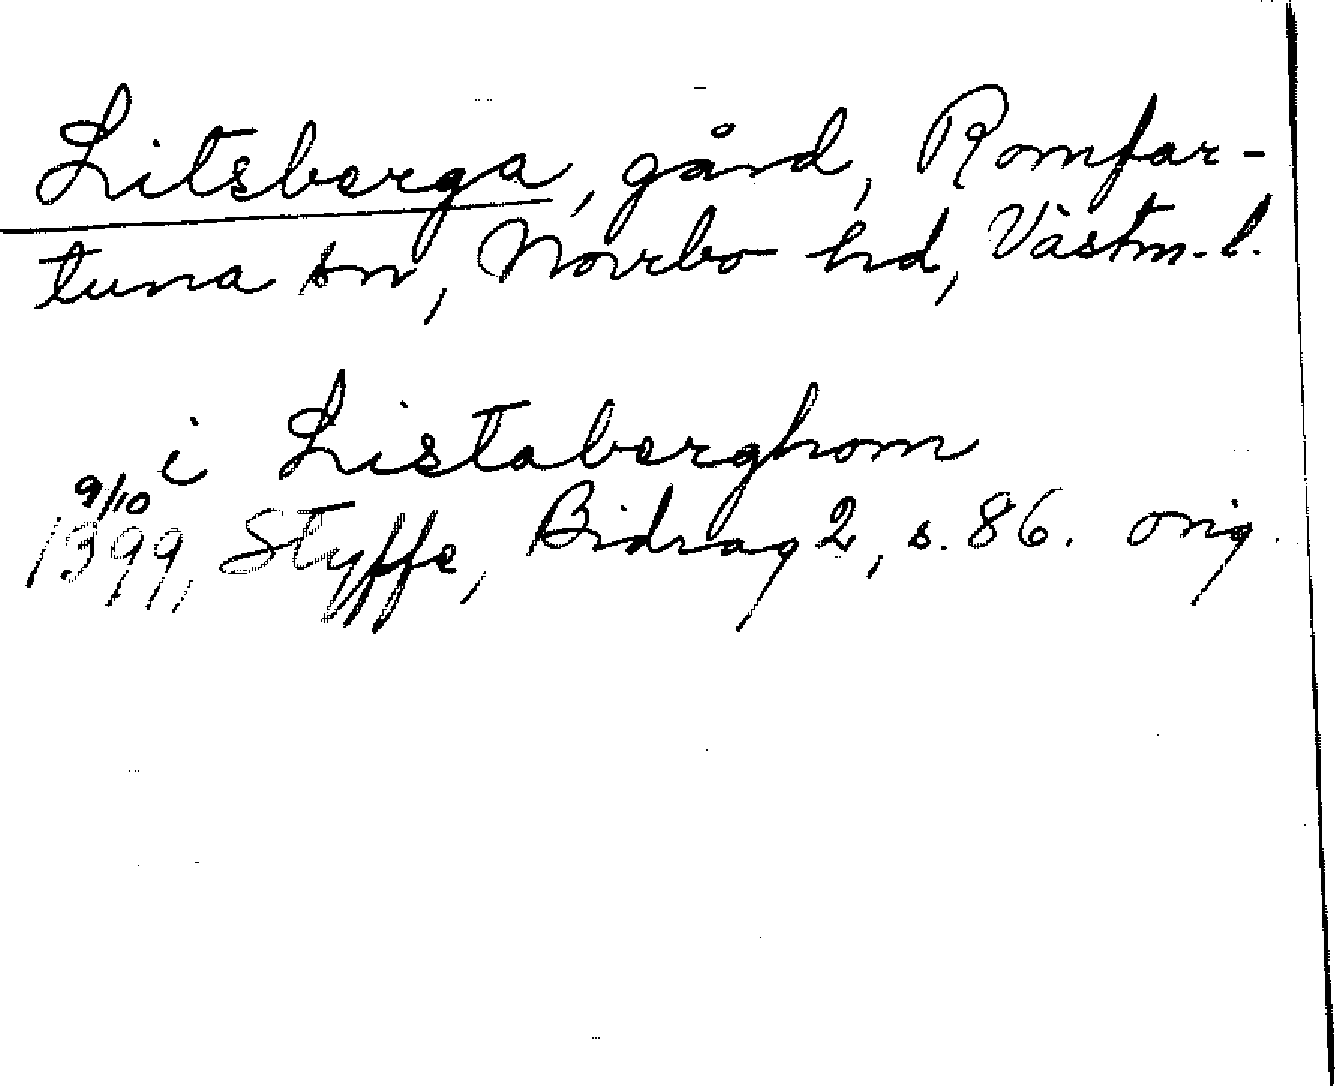 Litsberga, gård, Romfar-
tuna sn, Norrbo hd, Västm. l.
i Listaberghom
9/10
1399, Styffe, Bidrag 2, s. 86. orig.